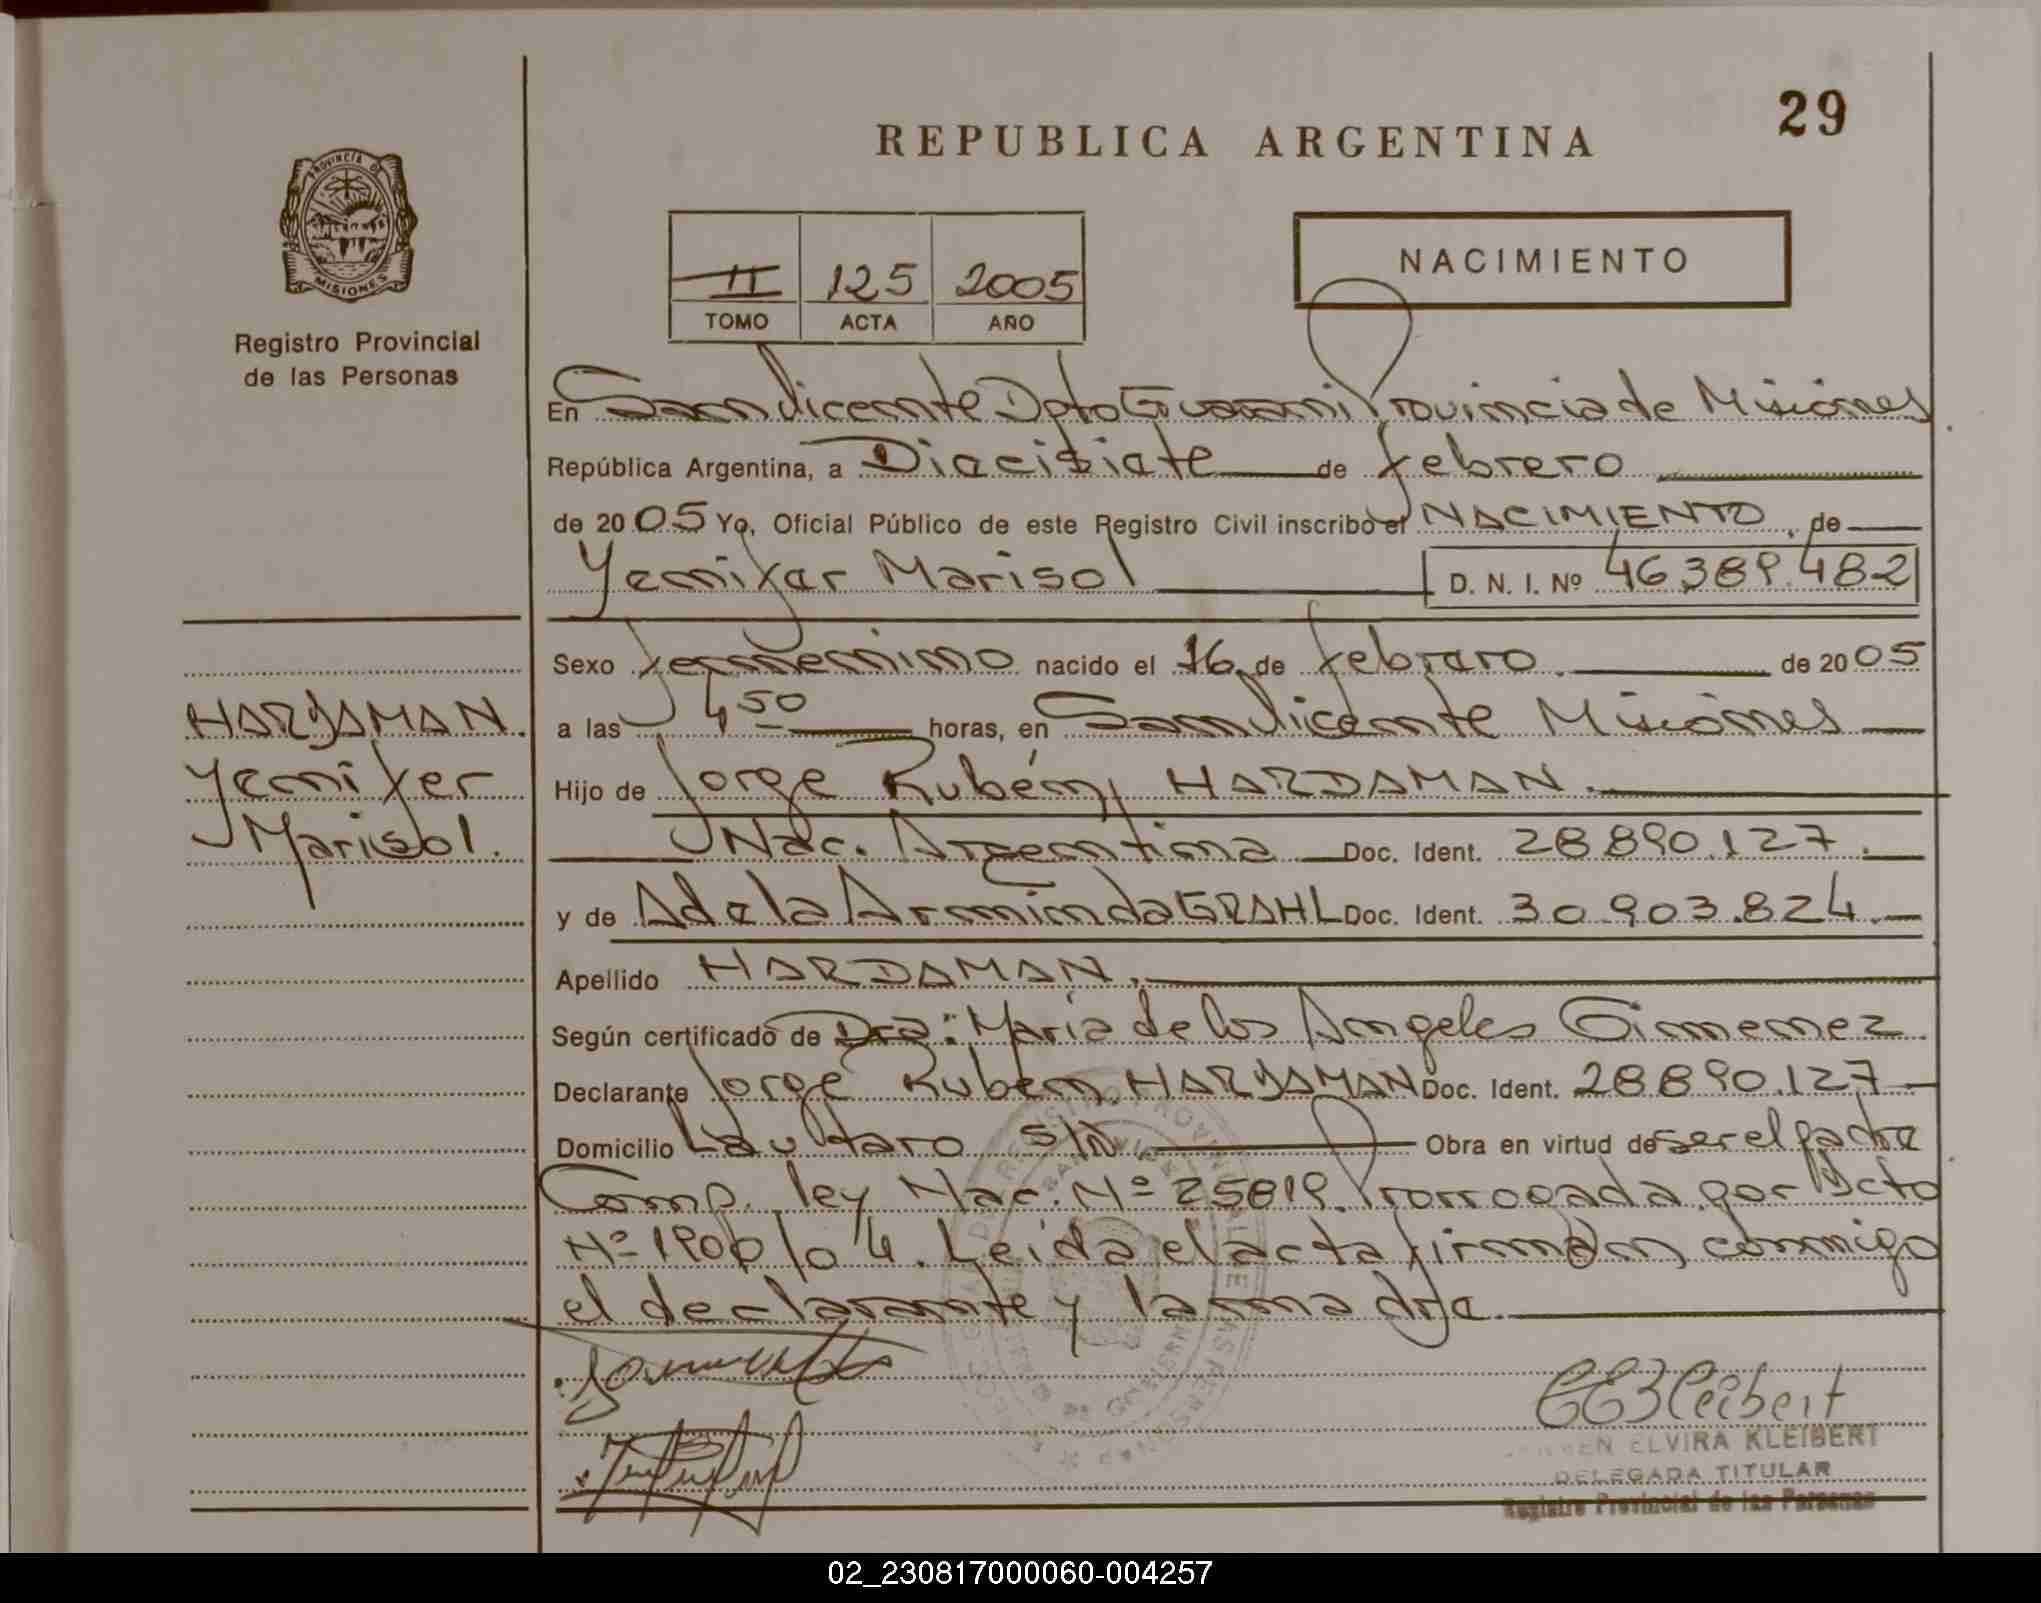 29
REPUBLICA ARGENTINA
PROVINCIA DE
MISIONES
Registro Provincial
de las Personas
NACIMIENTO
II 125 2005
TOMO ACTA AÑO
En San Vicente Dpto Guarani Provincia de Misiones
República Argentina, a Diecisiete de febrero
de 2005 Yo, Oficial Público de este Registro Civil inscribo el NACIMIENTO, de
Yenifer Marisol D. N. I. Nº 46.389.482
Sexo femenino nacido el 16 de febrero de 2005
a las 4,50 horas, en San Vicente Misiones
Hijo de Jorge Rubén HARDAMAN.
Nac. Argentina Doc. Ident. 28.890.127.
y de Adela Arminda GRAHL Doc. Ident. 30.903.824.
Apellido HARDAMAN.
Según certificado de Dra: María de los Angeles Gimenez
Declarante Jorge Ruben HARDAMAN Doc. Ident. 28.890.127
Domicilio Lautaro S/N. Obra en virtud de ser el padre
Comp. ley Nac. Nº 25819. Prorrogada por Dcto
Nº 1900/04. Leida el acta firman conmigo
el declarante y la madre.
HARDAMAN.
Yenifer
Marisol.
ELVIRA KLEIBERT
DELEGADA TITULAR
Registro Provincial de las Personas
02_230817000060-004257